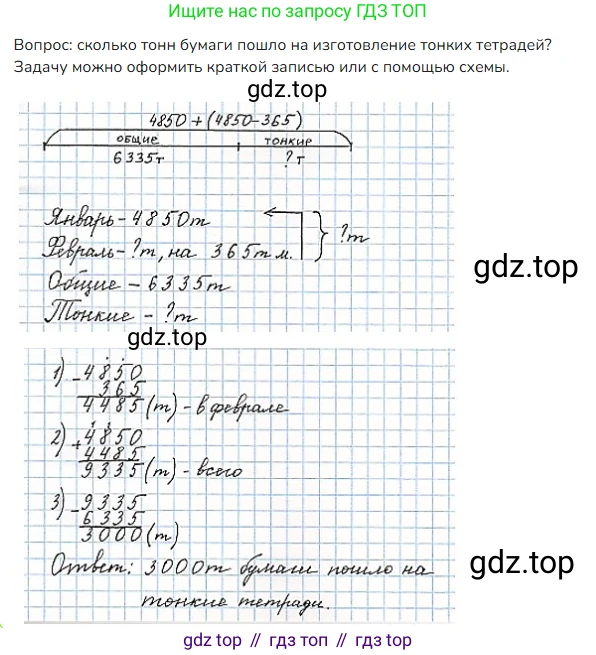 Ищите нас по запросу ГДЗ ТОП
Вопрос: сколько тонн бумаги пошло на изготовление тонких тетрадей?
Задачу можно оформить краткой записью или с помощью схемы.
gdz.top
4850 + (4850-365)
общие тонкие
6335т ?т
Январь - 4850т
Февраль - ?т, на 365т м. ?т
gdz.top
Общие - 6335т
Тонкие - ?т
gdz.top
1) - 4850
365
4485 (т) - в феврале
2) + 4850
4485
9335 (т) - всего
3) - 9335
6335
3000 (т)
gdz.top
Ответ: 3000т бумаги пошло на
тонкие тетради.
gdz.top // гдз топ // gdz.top